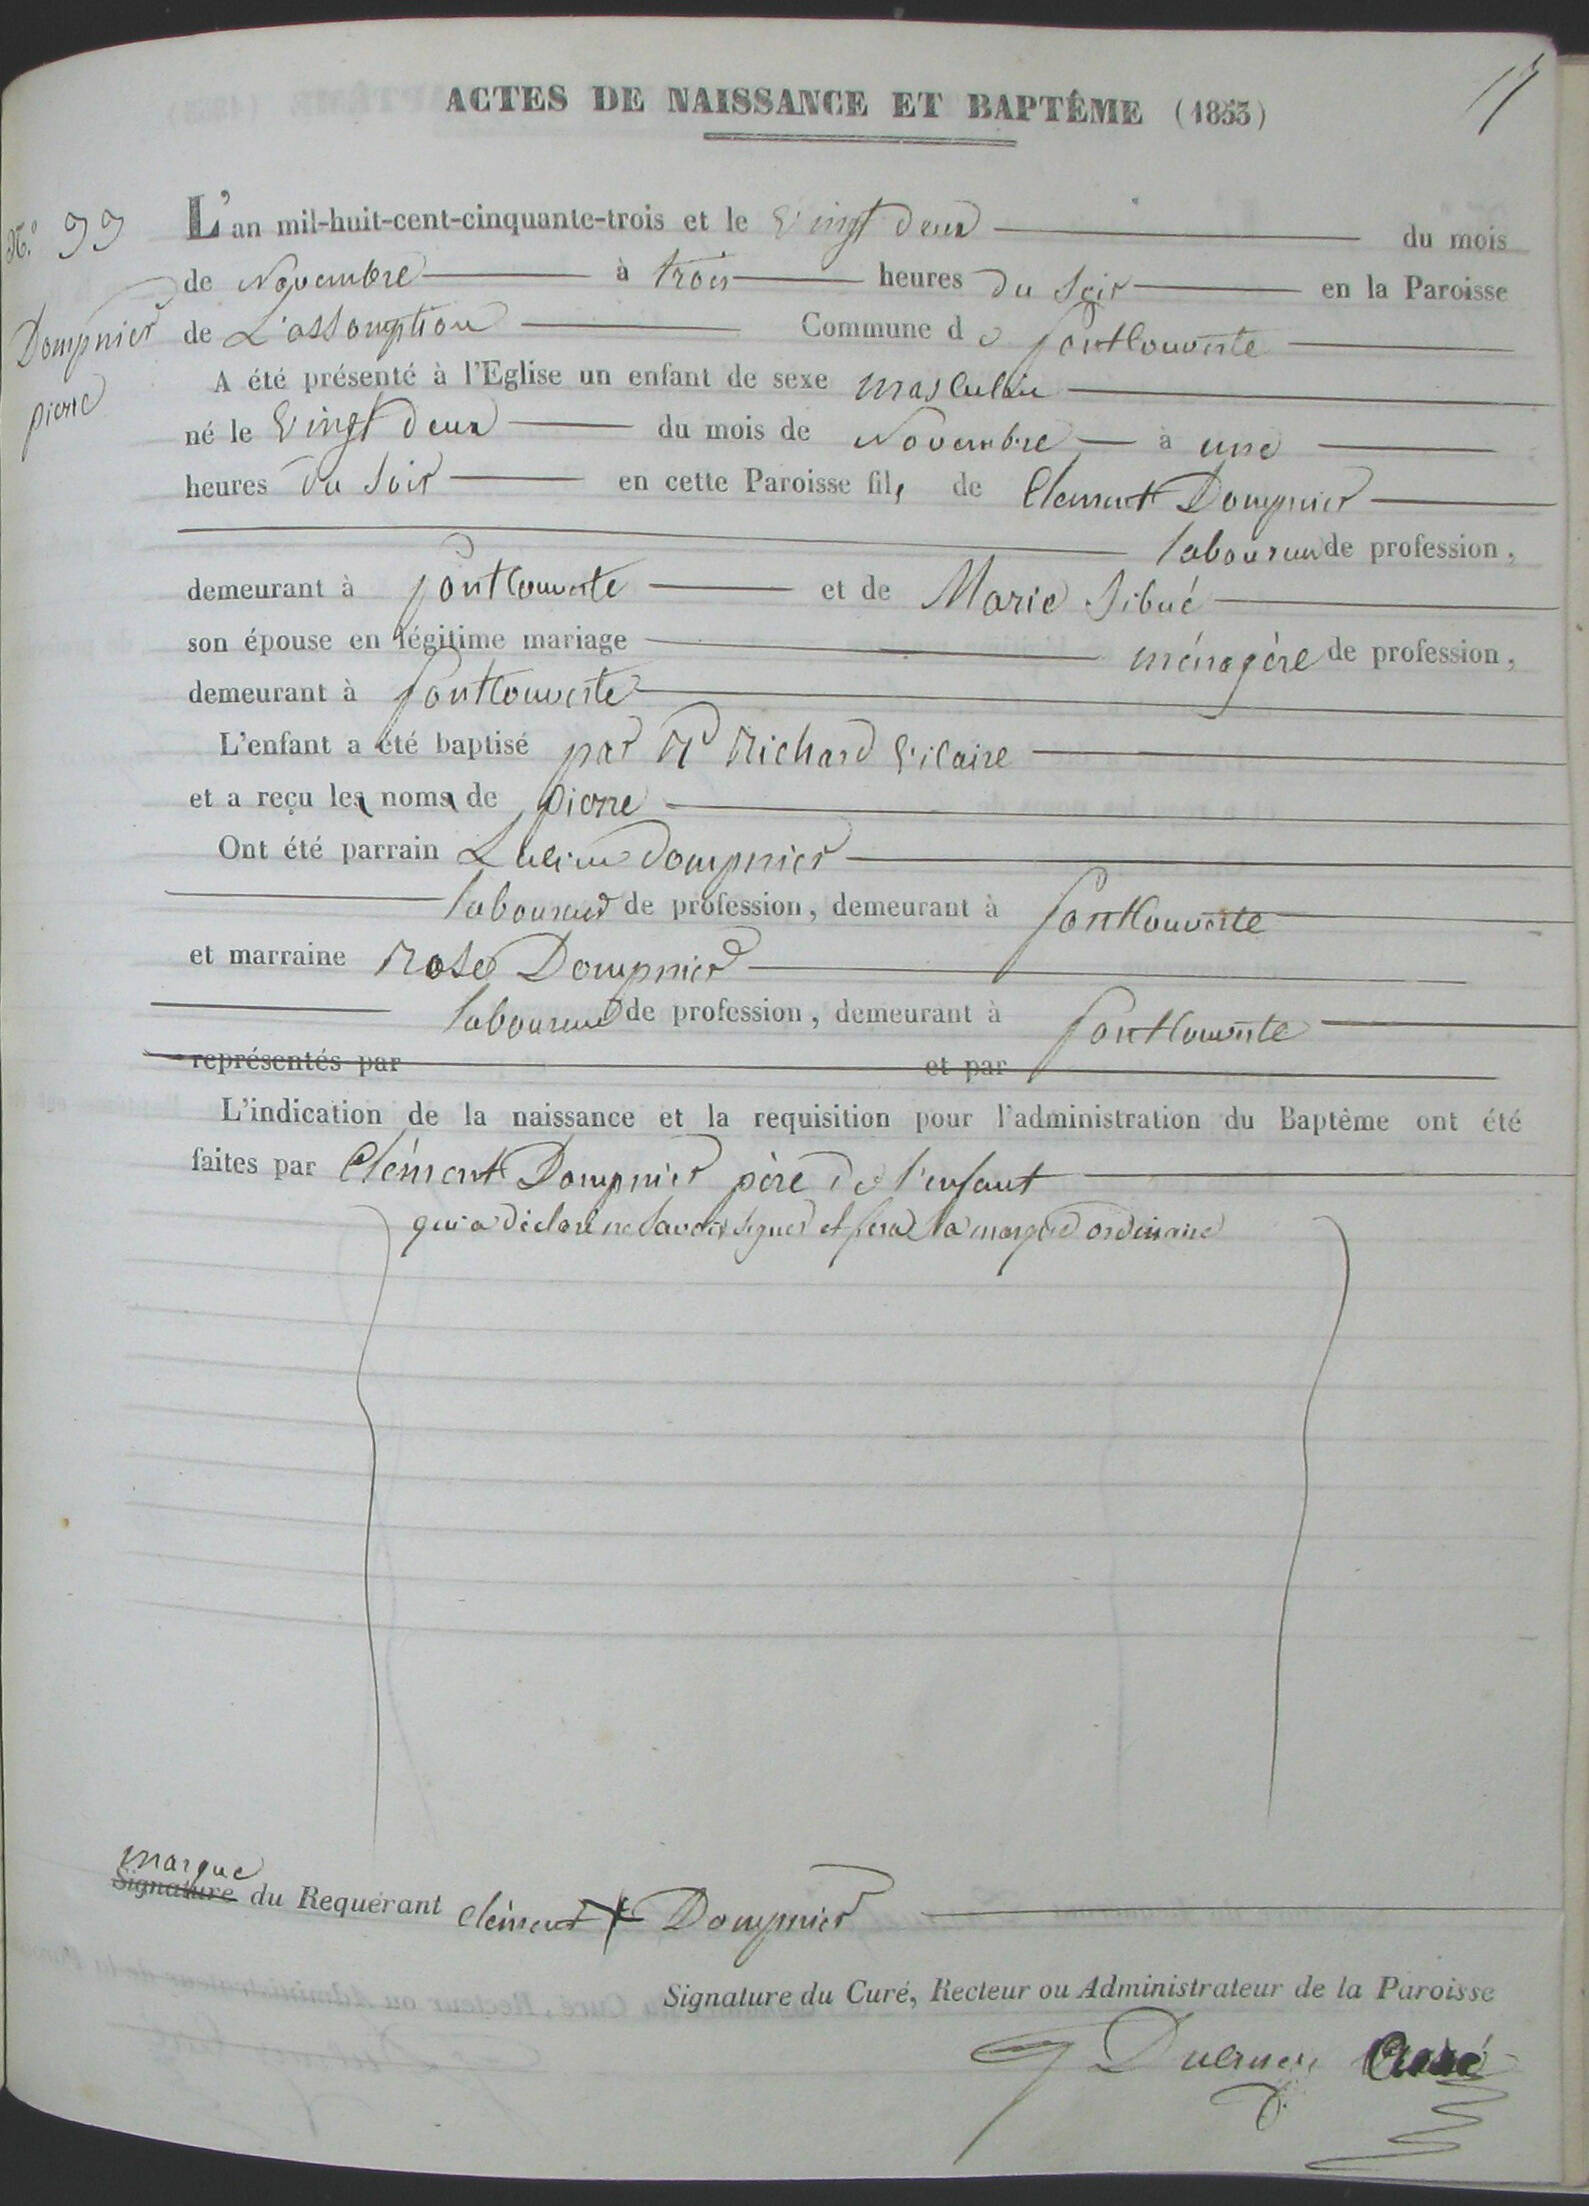 17
ACTES DE NAISSANCE ET BAPTÊME (1853)
N.° 33
Dompnier
pierre
L'an mil-huit-cent-cinquante-trois et le vingt deux du mois
de Novembre à trois heures du soir en la Paroisse
de L'assomption Commune de fontcouverte
A été présenté à l'Eglise un enfant de sexe masculin
né le vingt deux du mois de Novembre à une
heures du soir en cette Paroisse fils de Clement Dompnier
laboureur de profession,
demeurant à fontcouverte et de Marie Sibué
son épouse en légitime mariage ménagère de profession,
demeurant à fontcouverte
L'enfant a été baptisé par Rd Richard Vicaire
et a reçu les noms de pierre
Ont été parrain Dompnier
laboureur de profession, demeurant à fontcouverte
et marraine Rose Dompnier
laboureur de profession, demeurant à fontcouverte
représentés par et par
L'indication de la naissance et la requisition pour l'administration du Baptême ont été
faites par Clément Dompnier père de l'enfant
qui a déclaré ne savoir signer et fera la marque ordinaire
marque
Signature du Requérant clément + Dompnier
Signature du Curé, Recteur ou Administrateur de la Paroisse
Curé